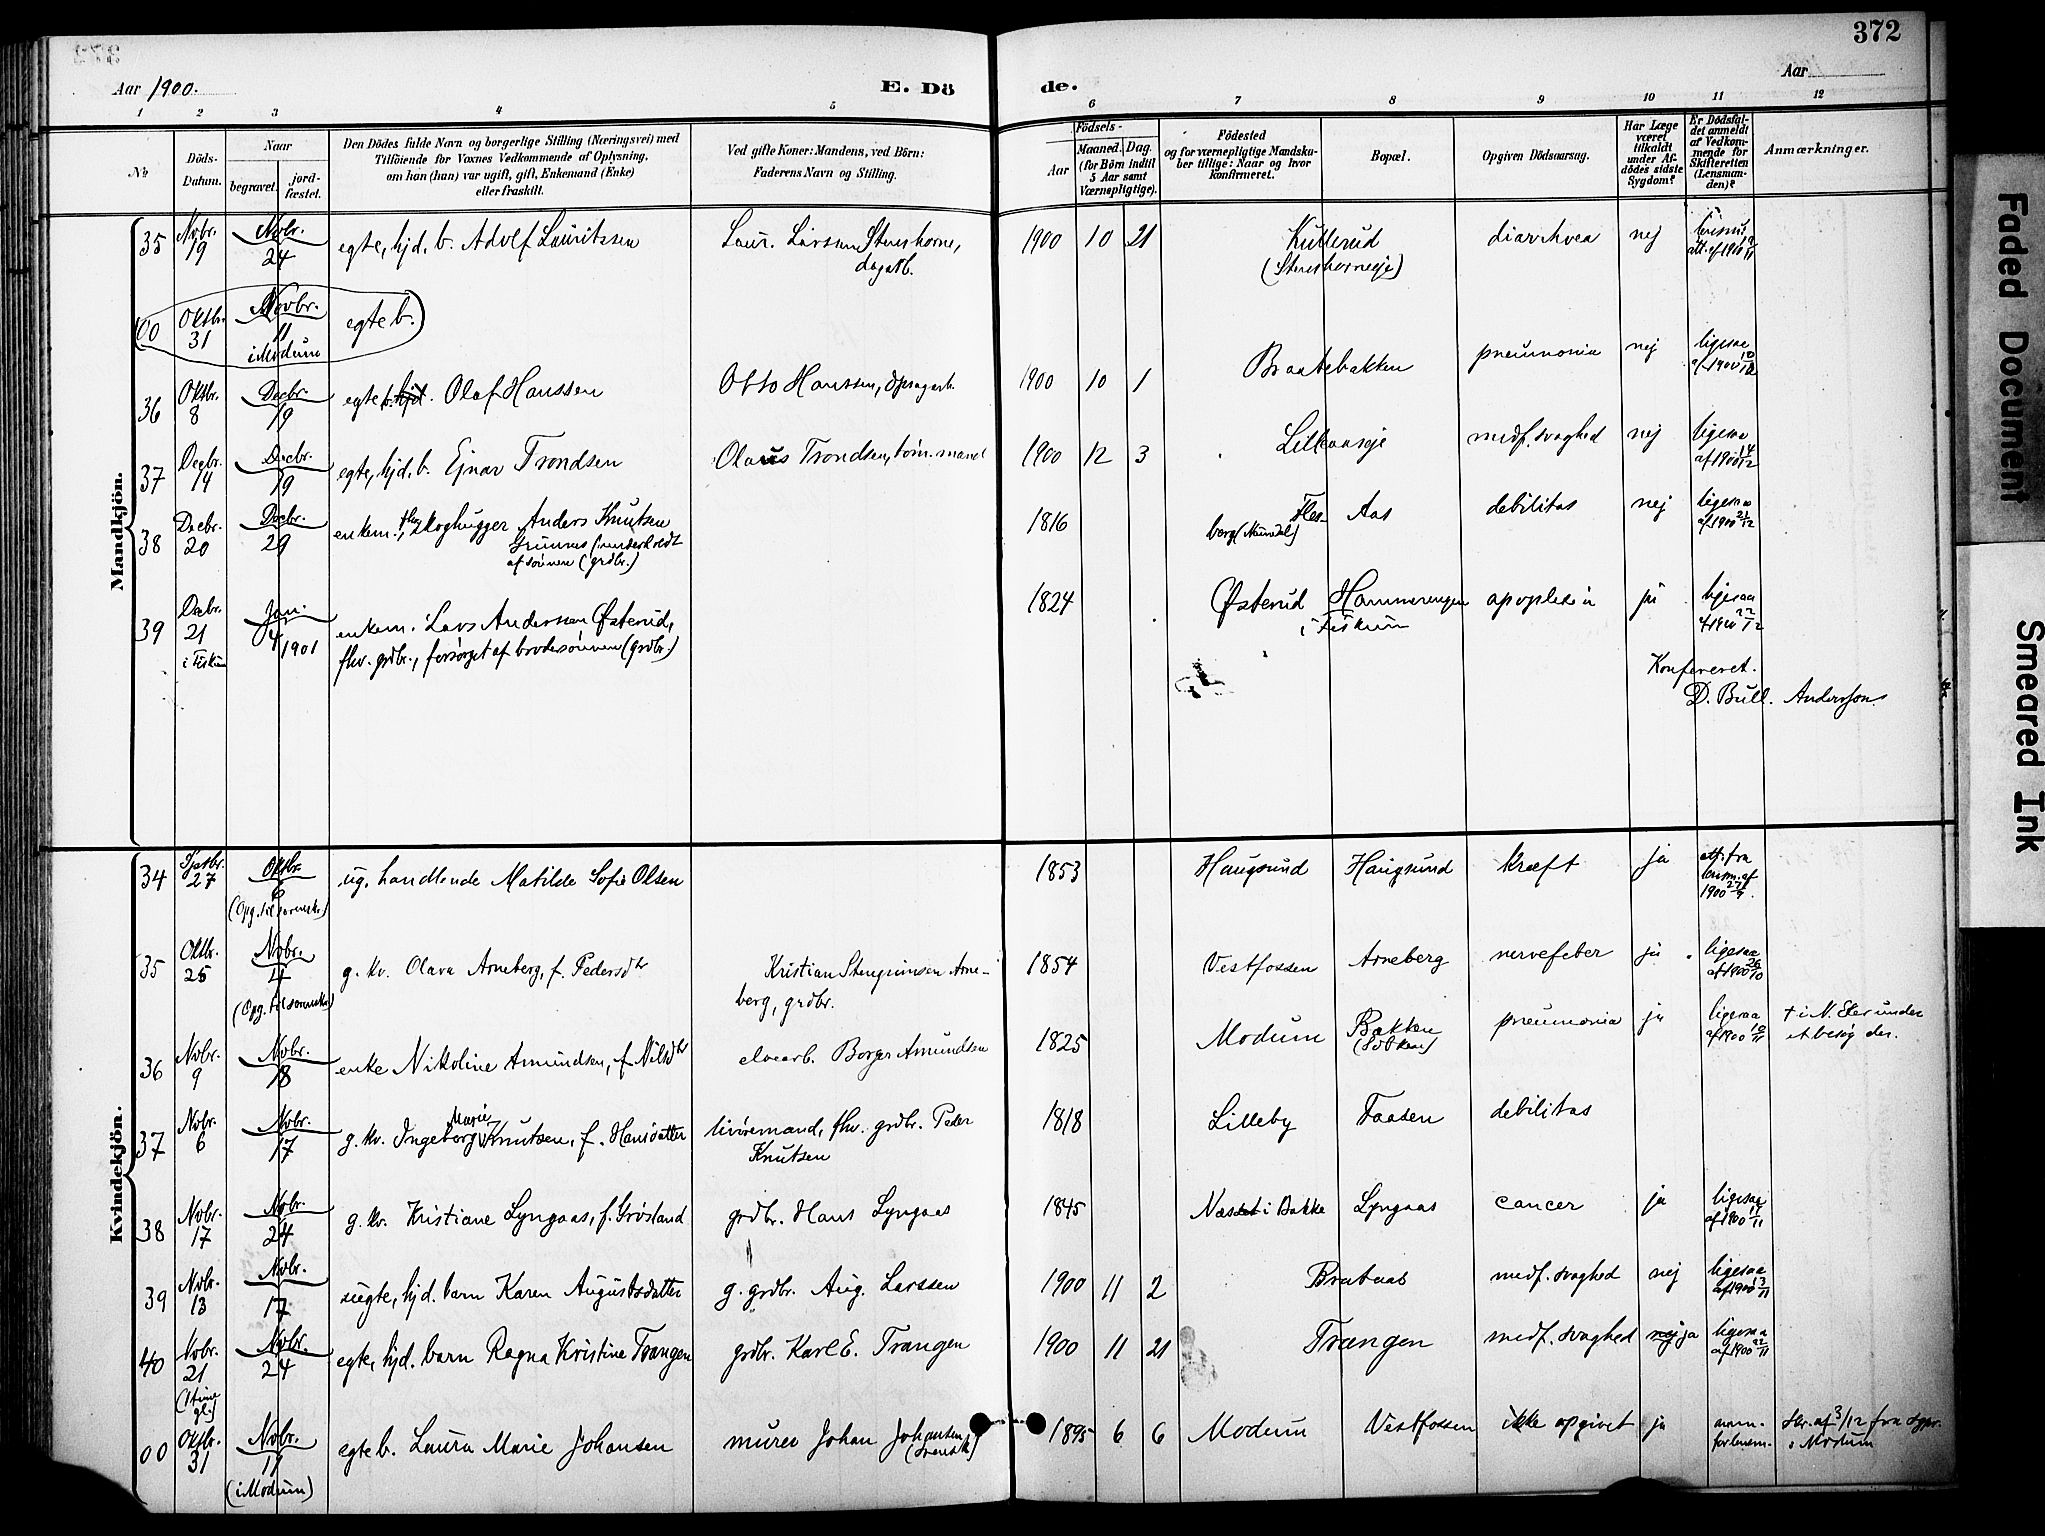 372
Aar 1900.
E. Dö
de.
Aar
1 2 3 4 5 6 7 8 9 10 11 12
No
Döds-
Datum.
Naar
begravet.
jord-
fæstet.
Den Dödes fulde Navn og borgerlige Stilling (Næringsvei) med
Tilföiende for Voxnes Vedkommende af Oplysning,
om han (hun) var ugift, gift, Enkemand (Enke)
eller fraskilt.
Ved gifte Koner: Mandens, ved Börn:
Faderens Navn og Stilling.
Födsels-
Aar
Maaned.
Dag.
(for Börn indtil
5 Aar samt
Værnepligtige).
Födested
og for værnepligtige Mandska-
ber tillige: Naar og hvor
konfirmeret.
Bopæl.
Opgiven Dödsaarsag.
Har Læge
været
tilkaldt
under Af-
dödes sidste
Sygdom?
Er Dödsfal-
det anmeldt
af Vedkom-
mende for
Skifteretten
(Lensman-
den)?
Anmærkninger.
Mandkjön.
35 Novbr. 19 Novbr. 24 egte, hjd. b. Adolf Lauritssen Laur. Larsen Stenshorne, dagarb. 1900 10 21 Kullerud (Stenshorneeje) diarrhea nej
00 Oktbr. 31 Novbr. 11 i Modum egte b.
36 Oktbr. 8 Decbr. 19 egte b. hjd. Olaf Hanssen Otto Hanssen, 1900 10 1 Braatebakken pneumonia nej ligesaa af 1900 10/12
37 Decbr. 14 Decbr. 19 egte, hjd. b. Ejnar Trondsen Olaus Trondsen, tøm. mand 1900 12 3 Lilleaaseje medf. svaghed nej ligesaa af 1900 14/12
38 Decbr. 20 Decbr. 29 enkem., fhv. skoghugger Anders Knutsen Grünnes (underholdt af sønnen (grdbr.) 1816 Fles-berg (Numedal) Aas debilitas nej ligesaa af 1900 21/12
39 Decbr. 21 i Fiskum Jan. 4 1901 enkem. Lars Anderssen Østerud, fhv. grdbr., forsørget af brodersønnen (grdbr.) 1824 Østerud Hammerengen i Fiskum apoplexia ja ligesaa af 1900 22/12
Konfereret.
D. Bull. Anderssen
Kvindekjön.
34 27 Oktbr. 6 (Opg. til sorenskr.) ug. handlende Matilde Sofie Olsen 1853 Haugsund Haugsund kræft ja att. fra lensm. af 1900 27/9.
35 Oktbr. 25 Novbr. 4 (Opg. til sorenskr.) g. kv. Olava Arneberg, f. Pedersdtr Kristian Stengrimsen Arne-berg, grdbr. 1854 Vestfossen Arneberg nervefeber ja ligesaa af 1900 26/10
36 Novbr. 9 Novbr. 18 enke Nikoline Amundsen, f. Nilsdtr elvearb. Borger Amundsen 1825 Modum Bakken pneumonia ja ligesaa af 1900 10/11 † i N. Eker under et besøg der.
37 Novbr. 6 Novbr. 17 g. kv. Ingeborg Marie Knutsen, f. Hansdatter livøremand, fhv. grdbr. Peder Knutsen 1818 Lilleby Faasen debilitas
38 Novbr. 17 Novbr. 24 g. kv. Kristiane Lyngaas, f. Grøsland grdbr. Hans Lyngaas 1845 Næstet i Bakke Lyngaas cancer ja ligesaa af 1900 17/11
39 Novbr. 13 Novbr. 17 uegte, hjd. barn Karen Augustsdatter g. grdbr. Aug. Larssen 1900 11 2 Brataas medf. svaghed nej ligesaa af 1900 13/11
40 Novbr. 21 (1 time gl.) Novbr. 24 egte, hjd. barn Ragna Kristine Trangen grdbr. Karl E. Trangen 1900 11 21 Trangen medf. svaghed nej ja ligesaa af 1900 22/11
00 Oktbr. 31 Novbr. 11 (i Modum) egte b. Laura Marie Johansen murer Johan Johansen (svensk) 1895 6 6 Modum Vestfossen ikke opgivet ja anm. for lensm. Skr. af 3/12 fra spr. i Modum
Faded Document
Smeared Ink